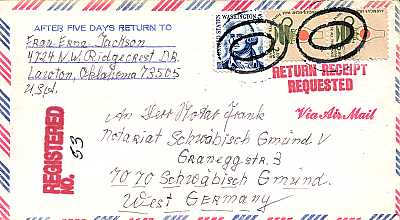 AFTER FIVE DAYS RETURN TO
Frau Erna Jackson
4724 N.W. Ridgecrest DR.
Lawton, Oklahoma 73505
U.S.A.
UNITED STATES
WASHINGTON
RETURN RECEIPT
REQUESTED
Via Air Mail
REGISTERED
NO. 53
An Herr Notar Frank
Notariat Schwäbisch Gmünd V
Graneggstr. 3
7070 Schwäbisch Gmünd.
West Germany